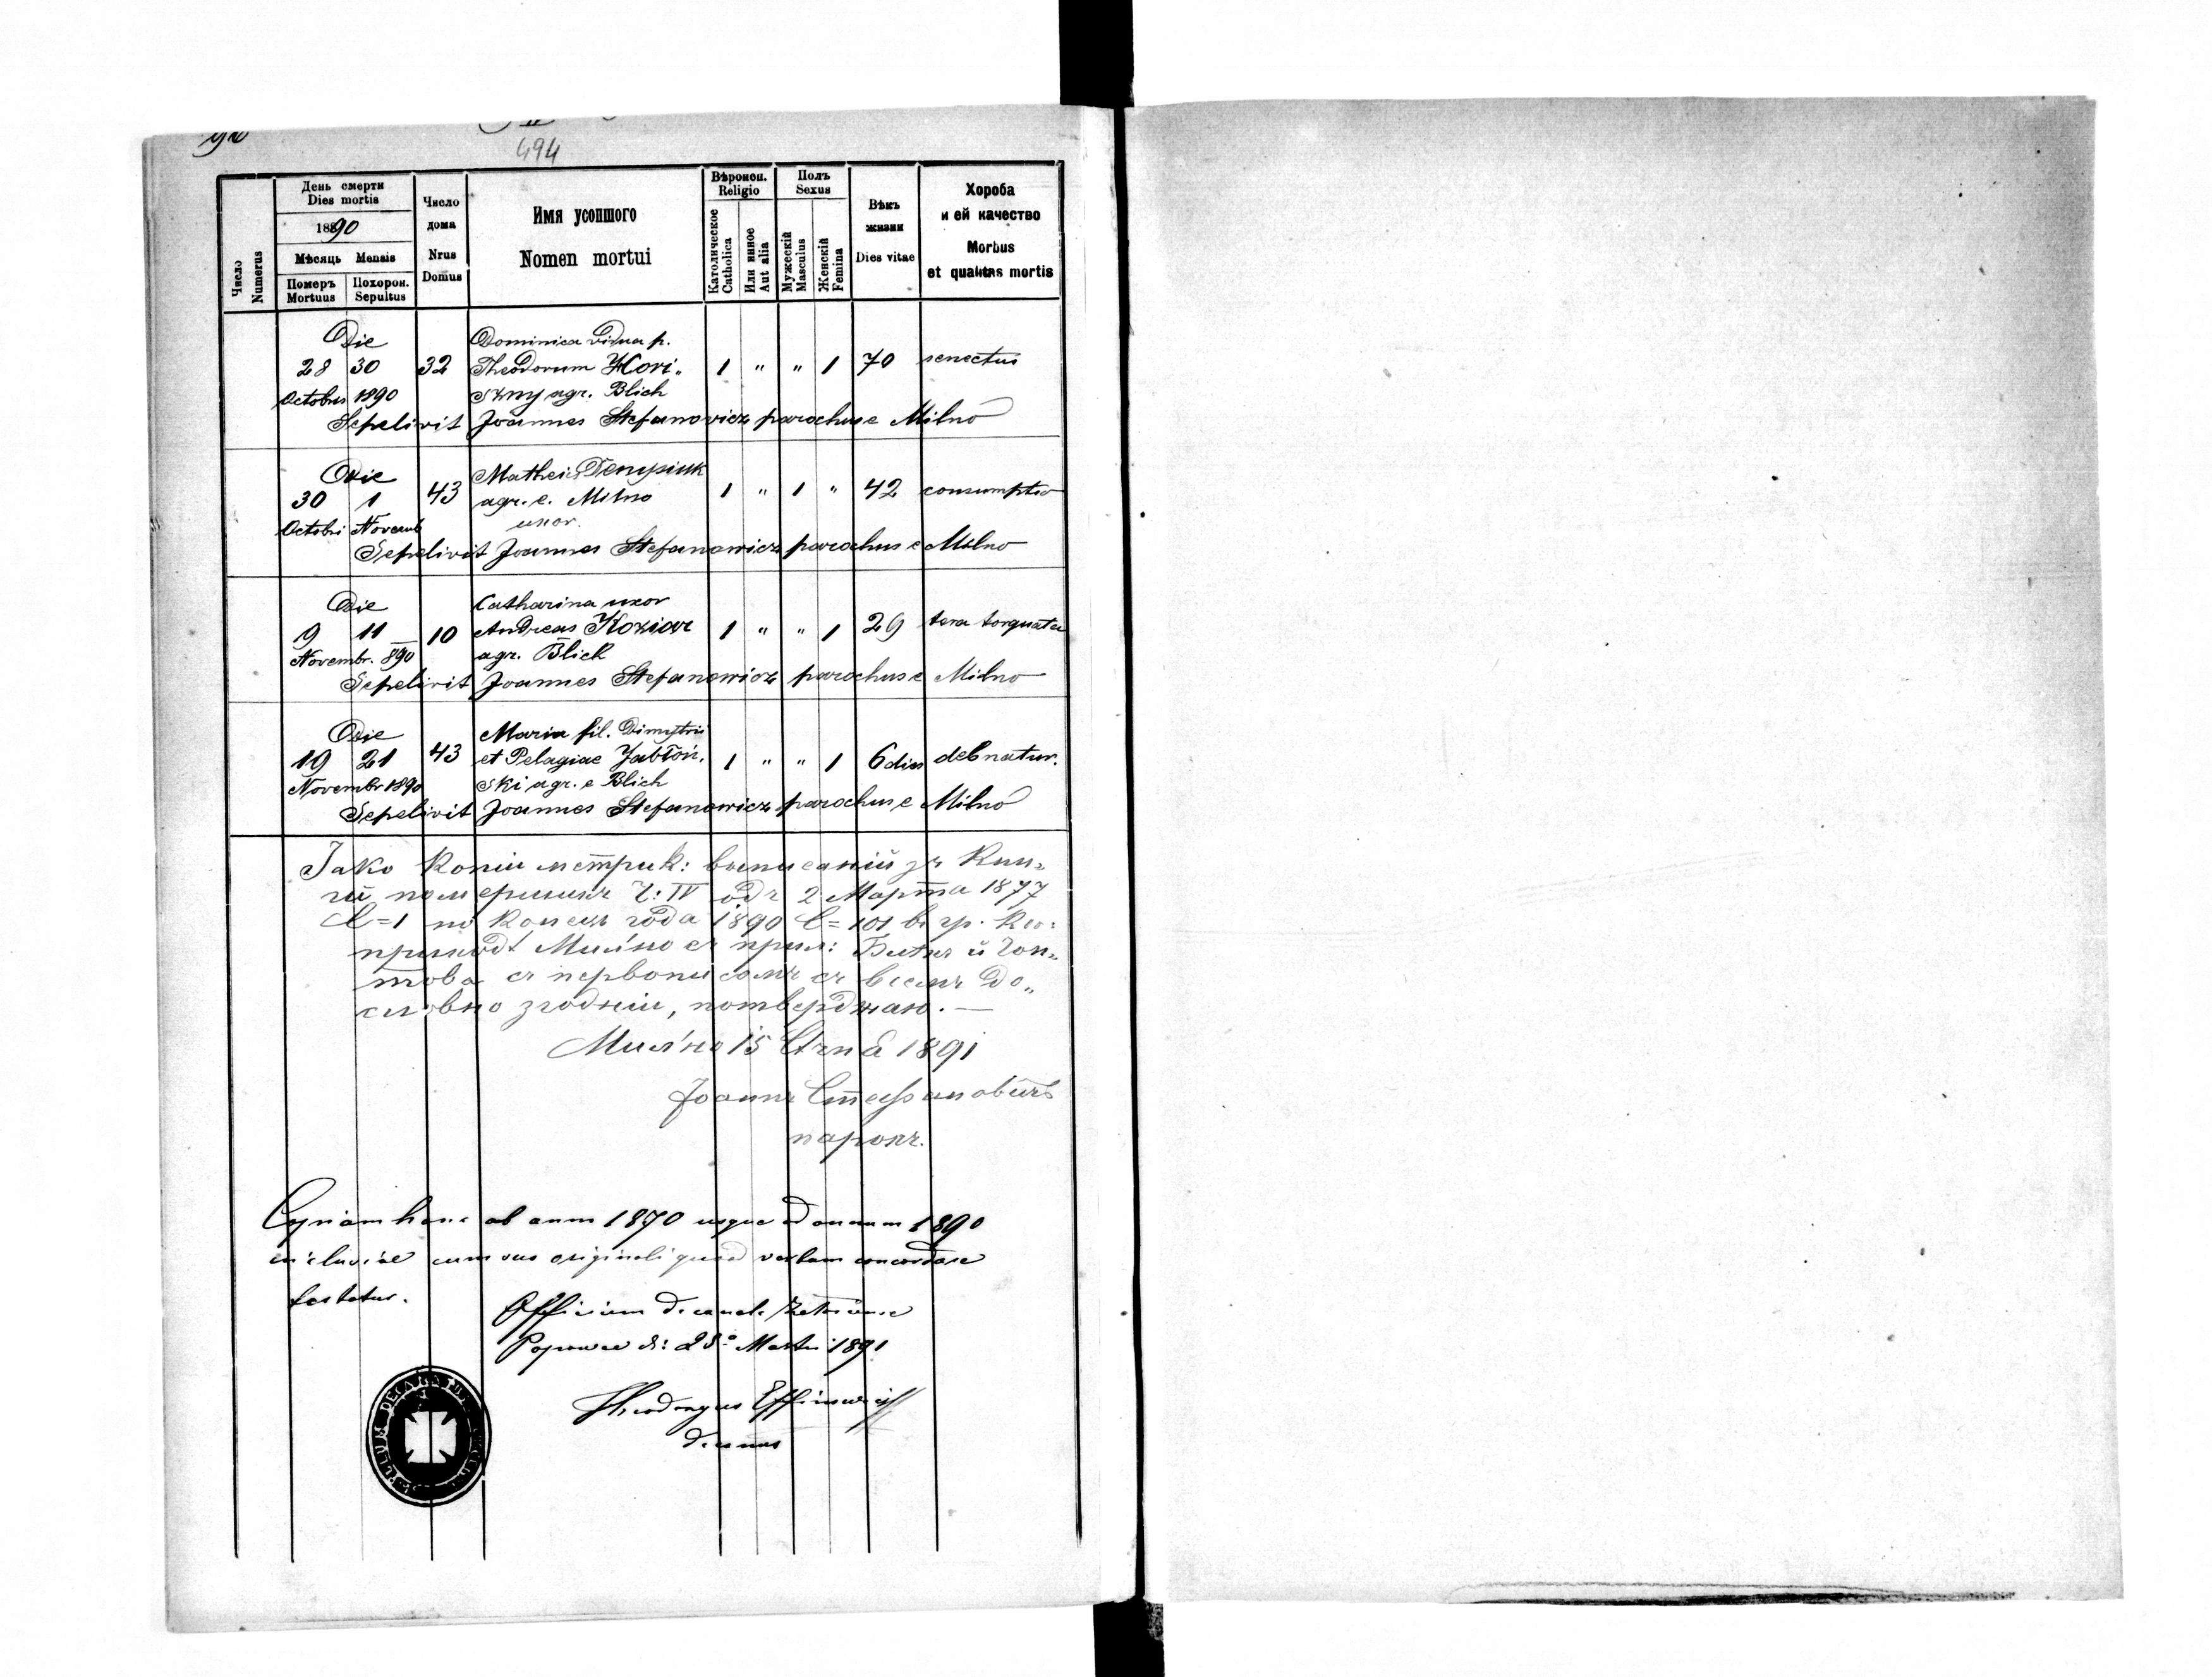 494
День смерти
Dies mortis
1890
Мѣсяць Mensis
Померъ Похорон.
Mortuus Sepultus
Число
Numerus
Число
дома
Nrus
Domus
Имя усопшого
Nomen mortui
Вѣроисп.
Religio
Католическое
Catholica
Или инное
Aut alia
Полъ
Sexus
Мужескій
Masculus
Женскій
Femina
Вѣкъ
жизни
Dies vitae
Хороба
и ей качество
Morbus
et qualitas mortis
Die Dominica vidua p.
28 30 32 Theodorum Hori- 1 " " 1 70 senectus
Octobris 1890 szny agr. Blich
Sepelivit Joannes Stefanowicz parochus e Milno
Die Matheis
30 1 43 agr. e. Milno 1 " 1 " 42 consumptio
Octobri Novemb uxor.
Sepelivit Joannes Stefanowicz parochus e Milno
Die Catharina uxor
9 11 10 Andreas Koziar 1 " " 1 29 torquata
Novembr. 890 agr. Blich
Sepelivit Joannes Stefanowicz parochus e Milno
Die Maria fil. Dimytrii
19 21 43 et Pelagiae Jabłoń- 1 " " 1 6 dies deb natur.
Novembr 1890 ski agr. e Blich
Sepelivit Joannes Stefanowicz parochus e Milno
Јако копіи метрик: выписаній зъ Кни-
ги помершихъ Ч: IV одъ 2 Марта 1877
по конецъ года 1890 101 въ гр.
приход Мильно съ прил:
съ первописомъ съ всемъ до-
словно згодніи, потверджаю. —
Мильно 15 1891
Јоаннъ Стефановичъ
парохъ.
Copiam hanc ab anno 1870 usque ad annum 1890
inclusive cum suo originali quoad verbum concordare
testatur.
Officium Decanale
Popowce d: 28 Martii 1891
decanus